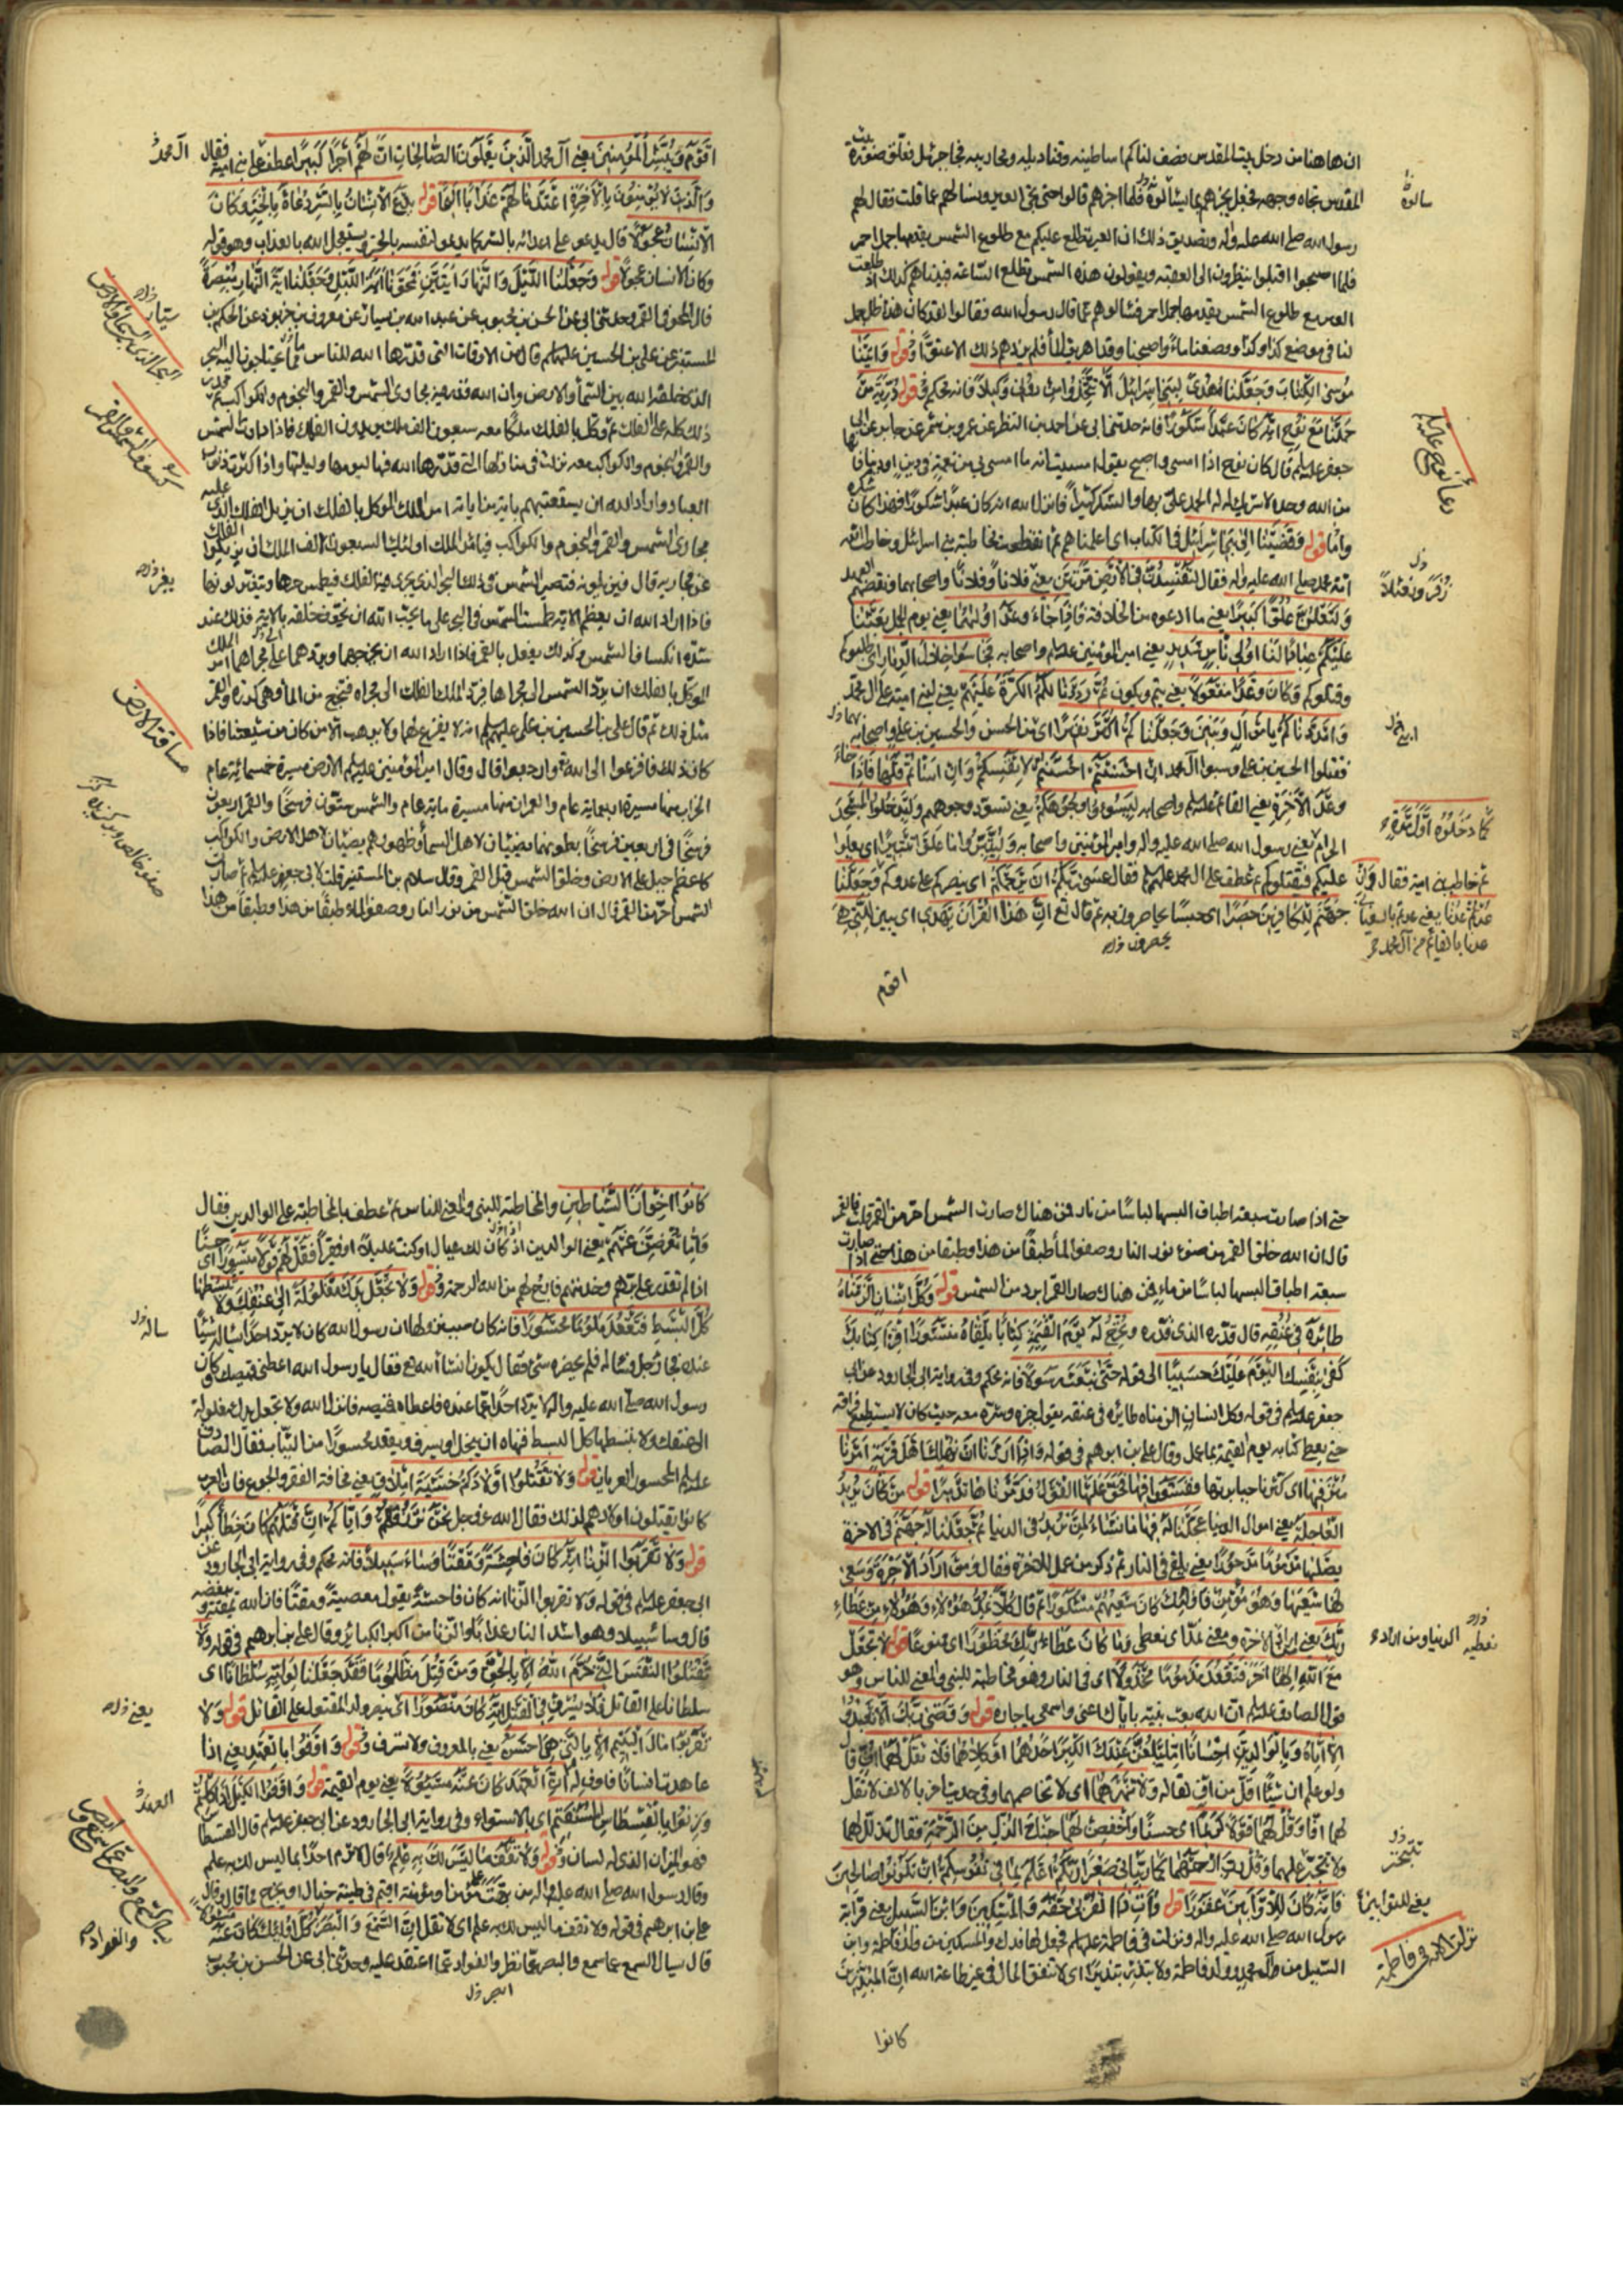 ان هاهنا من دخل بيت المقدس فصف لنا كم اساطينه وقناديله ومحاريبه فجاء جبرئيل فعلق صورة بيت
المقدس تجاه وجهه فجعل يخبرهم بما يسألونه فلما اخبرهم قالوا حتى تجئ العير ونسالهم عما قلت فقال لهم
رسول الله صلى الله عليه واله وتصديق ذلك ان العير تطلع عليكم مع طلوع الشمس يقدمها جمل احمر
فلما اصبحوا اقبلوا ينظرون الى العقبة ويقولون هذه الشمس تطلع الساعة فبيناهم كذلك اذ طلعت
العير مع طلوع الشمس يقدمها جمل احمر فسالوهم عما قال رسول الله فقالوا لقد كان هذا ضل جمل
لنا في موضع كذا وكذا ووضعنا ماء واصبحنا وقد اهريق الماء فلم يزدهم ذلك الا عتوا وقوله وَاتَيْنَا
مُوسَى الْكِتَابَ وَجَعَلْنَاهُ هُدىً لِبَنِي اِسْرَائِيلَ اَلَّا تَتَّخِذُوا مِنْ دُونِي وَكِيلاً فانه محكم وقوله ذُرِّيَّةَ مَنْ
حَمَلْنَا مَعَ نُوحٍ اِنَّهُ كَانَ عَبْداً شَكُوراً فانه حدثنى ابى عن احمد بن النضر عن عمرو بن شمر عن جابر عن ابى
جعفر عليه السلم قال كان نوح اذا امسى واصبح يقول امسيت انه ما امسى بى من نعمة في دين او دنيا فانها
من الله وحده لا شريك له له الحمد على بها والشكر كثيراً فانزل الله انه كان عبدا شكورا فهذا كان شكره
واما قوله وَقَضَيْنَا اِلَى بَنِي اِسْرَائِيلَ فِي الْكِتَابِ اى اعلمناهم ثم انقطعت مخاطبة بنى اسرائيل وخاطب الله
امة محمد صلى الله عليه واله فقال لَتُفْسِدُنَّ فِي الْاَرْضِ مَرَّتَيْنِ يعنى فلاناً وفلاناً واصحابهما ونقضهم العهد
وَلَتَعْلُنَّ عُلُوّاً كَبِيراً يعنى ما ادعوه من الخلافة فَاِذَا جَاءَ وَعْدُ اُولَيهُمَا يعنى يوم الجمل بَعَثْنَا
عَلَيْكُمْ عِبَاداً لَنَا اُولِي بَاْسٍ شَدِيدٍ يعنى امير المؤمنين عليه السلم واصحابه فَجَاسُوا خِلَالَ الدِّيَارِ اى طلبوكم
وقتلوكم وَكَانَ وَعْداً مَفْعُولاً يعنى يتم ويكون ثُمَّ رَدَدْنَا لَكُمُ الْكَرَّةَ عَلَيْهِمْ يعنى لبنى امية على ال محمد
وَاَمْدَدْنَاكُمْ بِاَمْوَالٍ وَبَنِينَ وَجَعَلْنَاكُمْ اَكْثَرَ نَفِيراً اى من الحسن والحسين بن على واصحابه
فقتلوا الحسين بن على وسبوا ال محمد اِنْ اَحْسَنْتُمْ اَحْسَنْتُمْ لِاَنْفُسِكُمْ وَاِنْ اَسَاْتُمْ فَلَهَا فَاِذَا جَاءَ
وَعْدُ الْاخِرَةِ يعنى القائم عليه السلم واصحابه لِيَسُوؤُا وُجُوهَكُمْ يعنى تسود وجوههم وَلِيَدْخُلُوا الْمَسْجِدَ
كَمَا دَخَلُوهُ اَوَّلَ مَرَّةٍ
الحرام يعنى رسول الله صلى الله عليه واله وامير المؤمنين واصحابه وَلِيُتَبِّرُوا مَا عَلَوْا تَتْبِيراً اى يعلوا
عليكم فيقتلوكم ثم عطف على ال محمد عليهم السلم فقال عَسَى رَبُّكُمْ اَنْ يَرْحَمَكُمْ اى ينصركم على عدوكم
ثم خاطب بنى امية فقال وَاِنْ عُدْتُمْ عُدْنَا يعنى عدتم بالسفيانى عدنا بالقائم من آل محمد
وَجَعَلْنَا
جَهَنَّمَ لِلْكَافِرِينَ حَصِيراً اى حبسا يحاصرون به ثم قال تع اِنَّ هَذَا الْقُرْآنَ يَهْدِي اى يبين لِلَّتِي هِيَ
يحصرون
اقوم
دعاء نوح عليه السلم
اَقْوَمُ وَيُبَشِّرُ الْمُؤْمِنِينَ يعنى آل محمد الَّذِينَ يَعْمَلُونَ الصَّالِحَاتِ اَنَّ لَهُمْ اَجْراً كَبِيراً ثم عطف على بنى امية فقال
وَالَّذِينَ لَا يُؤْمِنُونَ بِالْاخِرَةِ اَعْتَدْنَا لَهُمْ عَذَاباً اَلِيماً قوله يَدْعُ الْاِنْسَانُ بِالشَّرِّ دُعَاءَهُ بِالْخَيْرِ وَكَانَ
الْاِنْسَانُ عَجُولاً قال يدعو على اعدائه بالشر كما يدعو لنفسه بالخير ويستعجل الله بالعذاب وهو قوله
وكان الانسان عجولا قوله وَجَعَلْنَا اللَّيْلَ وَالنَّهَارَ ايَتَيْنِ فَمَحَوْنَا ايَةَ اللَّيْلِ وَجَعَلْنَا ايَةَ النَّهَارِ مُبْصِرَةً
قال المحو في القمر وحدثنى ابى عن الحسن بن محبوب عن عبد الله بن سيار عن معروف بن خربوذ عن الحكم بن
المستنير عن على بن الحسين عليهما السلم قال من الاوقات التى قدرها الله للناس مما يحتاجون اليه البحر
الذى خلقه الله بين السماء والارض وان الله قدر فيه مجارى الشمس والقمر والنجوم والكواكب ثم قدر
ذلك كله على الفلك ثم وكل بالفلك ملكا معه سبعون الف ملك يديرون الفلك فاذا دارت الشمس
والقمر والنجوم والكواكب معه نزلت في منازلها التى قدرها الله فيها ليومها وليلتها واذا كثرت ذنوب
العباد واراد الله ان يستعتبهم باية من اياته امر الملك الموكل بالفلك ان يزيل الفلك الذى عليه
مجارى الشمس والقمر والنجوم والكواكب فيامر الملك اولئك السبعون الف الملك ان يزيلوا الفلك
عن مجاريه قال فيزيلونه فتصير الشمس في ذلك البحر الذى يجرى فيه الفلك فيطمس حرها ويتغير لونها
فاذا اراد الله ان يعظم الاية طمست الشمس في البحر على ما يحب الله ان يخوف خلقه بالاية فذلك عند
شدة انكساف الشمس وكذلك يفعل بالقمر فاذا اراد الله ان يخرجهما ويردهما الى مجراهما امر الملك
الموكل بالفلك ان يرد الشمس الى مجراها فيرد الملك الفلك الى مجراه فتخرج من الماء وهى كدرة والقمر
مثل ذلك ثم قال على بن الحسين بن على عليهم السلم انه لا يفزع لهما ولا يرهب الا من كان من شيعتنا فاذا
كان ذلك فافزعوا الى الله وارجعوا قال وقال امير المؤمنين عليه السلم الارض مسيرة خمسمائة عام
الخراب منها مسيرة اربعمائة عام والعمران منها مسيرة ماية عام والشمس ستون فرسخا والقمر اربعون
فرسخا في اربعين فرسخاً بطونهما يضيئان لاهل السماء وظهورهما يضيئان لاهل الارض والكواكب
كاعظم جبل على الارض وخلق الشمس قبل القمر وقال سلام بن المستنير قلت لابى جعفر عليه السلم لم صارت
الشمس احر من القمر قال ان الله خلق الشمس من نور النار وصفو الماء طبقا من هذا وطبقا من هذا
آل محمد
كسوف الشمس والقمر
مسافة الارض
حتى اذا صارت سبعة اطباق البسها لباسا من نار فمن هناك صارت الشمس احر من القمر قلت فالقمر
قال ان الله خلق القمر من ضوء نور النار وصفو الماء طبقا من هذا وطبقا من هذا حتى اذا صارت
سبعة اطباق البسها لباسا من ماء فمن هناك صار القمر ابرد من الشمس قوله وَكُلَّ اِنْسَانٍ اَلْزَمْنَاهُ
طَائِرَهُ فِي عُنُقِهِ قال قدره الذى قدره وَنُخْرِجُ لَهُ يَوْمَ الْقِيمَةِ كِتَاباً يَلْقَاهُ مَنْشُوراً اِقْرَاْ كِتَابَكَ
كَفَى بِنَفْسِكَ الْيَوْمَ عَلَيْكَ حَسِيباً الى قوله حَتَّى نَبْعَثَ رَسُولاً فانه محكم وفي رواية ابى الجارود عن ابى
جعفر عليه السلم في قوله وكل انسان الزمناه طائره في عنقه يقول خيره وشره معه حيث كان لا يستطيع فراقه
حتى يعطى كتابه يوم القيمة بما عمل وقال على بن ابرهيم في قوله وَاِذَا اَرَدْنَا اَنْ نُهْلِكَ قَرْيَةً اَمَرْنَا
مُتْرَفِيهَا اى كثرنا جبابرتها فَفَسَقُوا فِيهَا فَحَقَّ عَلَيْهَا الْقَوْلُ فَدَمَّرْنَاهَا تَدْمِيراً قوله مَنْ كَانَ يُرِيدُ
الْعَاجِلَةَ يعنى اموال الدنيا عَجَّلْنَا لَهُ فِيهَا مَا نَشَاءُ لِمَنْ نُرِيدُ في الدنيا ثُمَّ جَعَلْنَا لَهُ جَهَنَّمَ في الاخرة
يَصْلَيهَا مَذْمُوماً مَدْحُوراً يعنى يلقى في النار ثم ذكر من عمل للاخرة فقال وَمَنْ اَرَادَ الْاخِرَةَ وَسَعَى
لَهَا سَعْيَهَا وَهُوَ مُؤْمِنٌ فَاُولَئِكَ كَانَ سَعْيُهُمْ مَشْكُوراً ثم قال كُلّاً نُمِدُّ هَؤُلَاءِ وَهَؤُلَاءِ مِنْ عَطَاءِ
رَبِّكَ يعنى من اراد الاخرة ومعنى نمد اى نعطى وَمَا كَانَ عَطَاءُ رَبِّكَ مَحْظُوراً اى ممنوعا قوله لَا تَجْعَلْ
مَعَ اللهِ اِلَهاً اخَرَ فَتَقْعُدَ مَذْمُوماً مَخْذُولاً اى في النار وهو مخاطبة للنبى والمعنى للناس وهو
قول الصادق عليه السلم ان الله بعث نبيه باياك اعنى واسمعى يا جارة قوله وَقَضَى رَبُّكَ اَلَّا تَعْبُدُوا
اِلَّا اِيَّاهُ وَبِالْوَالِدَيْنِ اِحْسَاناً اِمَّا يَبْلُغَنَّ عِنْدَكَ الْكِبَرَ اَحَدُهُمَا اَوْ كِلَاهُمَا فَلَا تَقُلْ لَهُمَا اُفٍّ قال
ولو علم ان شيئاً اقل من اف لقاله وَلَا تَنْهَرْهُمَا اى لا تخاصمهما وفي حديث اخر بالالف لا تقل
لهما افا وَقُلْ لَهُمَا قَوْلاً كَرِيماً اى حسنا وَاخْفِضْ لَهُمَا جَنَاحَ الذُّلِّ مِنَ الرَّحْمَةِ فقال تذلل لهما
ولا تتجبر عليهما وَقُلْ رَبِّ ارْحَمْهُمَا كَمَا رَبَّيَانِي صَغِيراً رَبُّكُمْ اَعْلَمُ بِمَا فِي نُفُوسِكُمْ اِنْ تَكُونُوا صَالِحِينَ
فَاِنَّهُ كَانَ لِلْاَوَّابِينَ غَفُوراً قوله وَاتِ ذَا الْقُرْبَى حَقَّهُ وَالْمِسْكِينَ وَابْنَ السَّبِيلِ يعنى قرابة
رسول الله صلى الله عليه واله ونزلت في فاطمة عليها السلم فجعل لها فدك والمسكين من ولد فاطمة وابن
السبيل من ال محمد وولد فاطمة ولا تبذر تبذيرا اى لا تنفق المال في غير طاعة الله اِنَّ الْمُبَذِّرِينَ
كانوا
نزلت الاية في فاطمة
كَانُوا اِخْوَانَ الشَّيَاطِينِ والمخاطبة للنبى والمعنى للناس ثم عطف بالمخاطبة على الوالدين فقال
وَاِمَّا تُعْرِضَنَّ عَنْهُمُ يعنى الوالدين اذ كان لك عيال او كنت عليلا او فقيرا فَقُلْ لَهُمْ قَوْلاً مَيْسُوراً اى حسنا
اذا لم تقدر على برهم وخدمتهم فارج لهم من الله الرحمة وقوله وَلَا تَجْعَلْ يَدَكَ مَغْلُولَةً اِلَى عُنُقِكَ وَلَا تَبْسُطْهَا
كُلَّ الْبَسْطِ فَتَقْعُدَ مَلُوماً مَحْسُوراً فانه كان سبب نزولها ان رسول الله كان لا يرد احدا يساله شيئا
عنده فجاء رجل فسأله فلم يحضره شئ فقال يكون انشاء الله فقال يا رسول الله اعطنى قميصك وكان
رسول الله صلى الله عليه واله لا يرد احدا عما عنده فاعطاه قميصه فانزل الله ولا تجعل يدك مغلولة
الى عنقك ولا تبسطها كل البسط فنهاه ان يبخل او يسرف ويقعد محسورا من الثياب فقال الصادق
عليه السلم المحسور العريان قوله وَلَا تَقْتُلُوا اَوْلَادَكُمْ خَشْيَةَ اِمْلَاقٍ يعنى مخافة الفقر والجوع فان العرب
كانوا يقتلون اولادهم لذلك فقال الله عز وجل نَحْنُ نَرْزُقُهُمْ وَاِيَّاكُمْ اِنَّ قَتْلَهُمْ كَانَ خِطْئاً كَبِيراً
قوله وَلَا تَقْرَبُوا الزِّنَا اِنَّهُ كَانَ فَاحِشَةً وَمَقْتاً وَسَاءَ سَبِيلاً فانه محكم وفي رواية ابى الجارود عن
ابى جعفر عليه السلم في قوله ولا تقربوا الزنا انه كان فاحشة يقول معصية ومقتا فان الله يمقته ويبغضه
قال وساء سبيلا وهو اشد النار عذابا والزنا من اكبر الكبائر وقال على بن ابرهيم في قوله وَلَا
تَقْتُلُوا النَّفْسَ الَّتِي حَرَّمَ اللهُ اِلَّا بِالْحَقِّ وَمَنْ قُتِلَ مَظْلُوماً فَقَدْ جَعَلْنَا لِوَلِيِّهِ سُلْطَاناً اى
سلطانا على القاتل فَلَا يُسْرِفْ فِي الْقَتْلِ اِنَّهُ كَانَ مَنْصُوراً اى ينصر ولد المقتول على القاتل قوله وَلَا
تَقْرَبُوا مَالَ الْيَتِيمِ اِلَّا بِالَّتِي هِيَ اَحْسَنُ يعنى بالمعروف ولا تسرف وقوله وَاَوْفُوا بِالْعَهْدِ يعنى اذا
عاهدت انسانا فاوف له اِنَّ الْعَهْدَ كَانَ عَنْهُ مَسْئُولاً يعنى يوم القيمة قوله وَاَوْفُوا الْكَيْلَ اِذَا كِلْتُمْ
وَزِنُوا بِالْقِسْطَاسِ الْمُسْتَقِيمِ اى بالاستواء وفي رواية ابى الجارود عن ابى جعفر عليه السلم قال القسطاس
فهو الميزان الذى له لسان وقوله وَلَا تَقْفُ مَا لَيْسَ لَكَ بِهِ عِلْمٌ قال لا ترم احدا بما ليس لك به علم
وقال رسول الله صلى الله عليه واله من بهت مؤمنا او مؤمنة اقيم في طينة خبال او يخرج مما قال وقال
على بن ابرهيم في قوله ولا تقف ما ليس لك به علم اى لا تقل اِنَّ السَّمْعَ وَالْبَصَرَ كُلُّ اُولَئِكَ كَانَ عَنْهُ مَسْئُولاً
قال يسأل السمع عما سمع والبصر عما نظر والفؤاد عما اعتقد عليه وحدثنى ابى عن الحسن بن محبوب
العهد